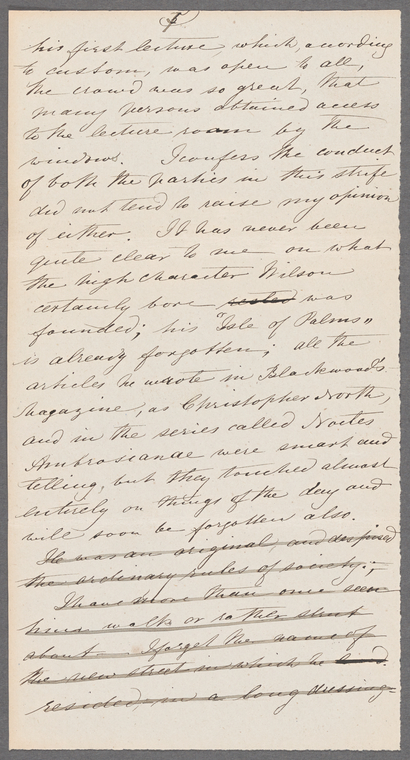 his first lecture, which, acording
to custom, was open to all,
the crowd was so great, that
many persons obtained access
to the lecture room by the
windows. I confess the conduct
of both the parties in this strife
did not tend to raise my opinion
of either. It has never been
quite clear to me on what
the high character Wilson
certainly bore rested was
founded; his "Isle of Palms"
is already forgotten; all the
articles he wrote in Blackwood's
Magazine, as Christopher North,
and in the series called Noctes
Ambrosianae were smart and
telling, but they touched almost
entirely on things of the day and
will soon be forgotten also.
He was an original, and despised
the ordinary rules of society;
I have more than once seen
him walk or rather strut
about. I forget the name of
the new street in which he
resided, in a long dressing-